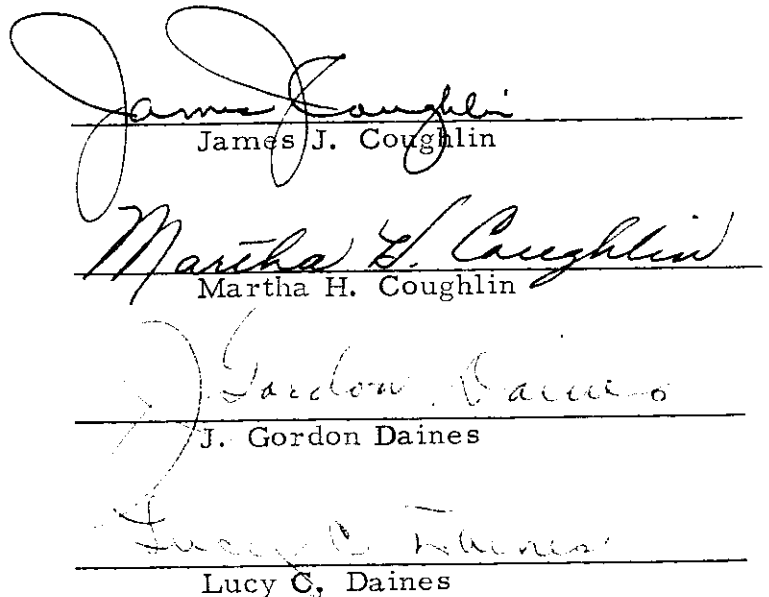 James J Coughlin
James J. Coughlin
Martha H. Coughlin
Martha H. Coughlin
J Gordon Daines
J. Gordon Daines
Lucy C Daines
Lucy C. Daines